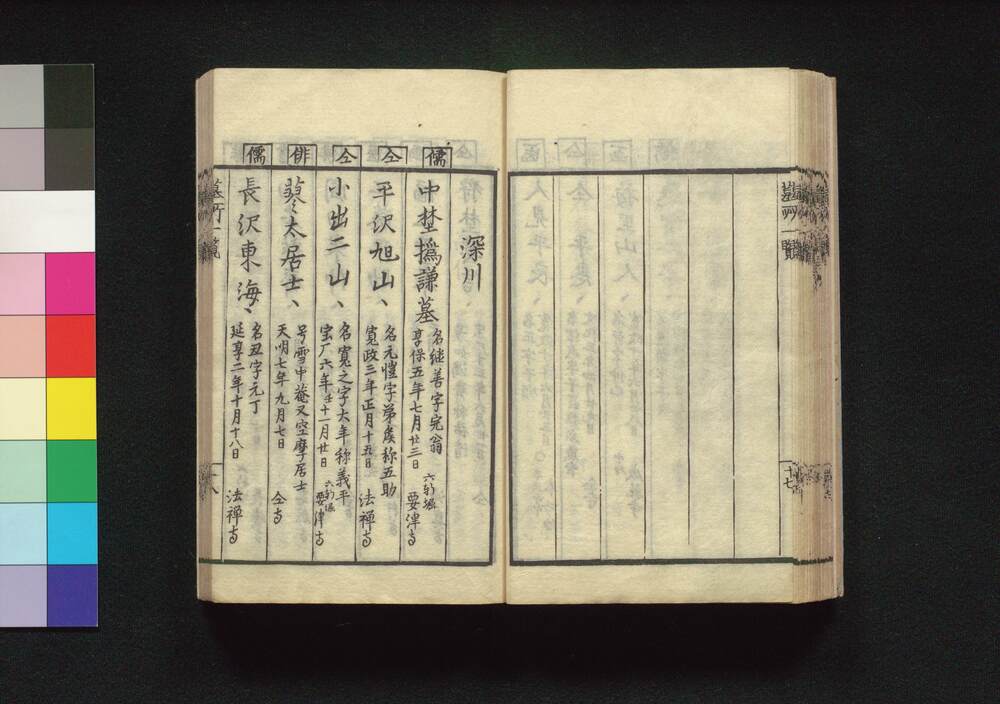 墓所一覧
十七
深川
儒
中埜撝謙墓
名継善字完翁
享保五年七月廿三日
六軒堀
要津寺
仝
平沢旭山、
名元愷字弟侯称五助
寛政三年正月十五日
法禅寺
仝
小出二山、
名寛之字大年称義平
宝厂六年壬十一月廿日
六軒堀
要津寺
俳
蓼太居士、
号雪中菴又空摩居士
天明七年九月七日
仝寺
儒
長沢東海、
名丑字元丁
延享二年十月十八日
法禅寺
墓所一覧
十八